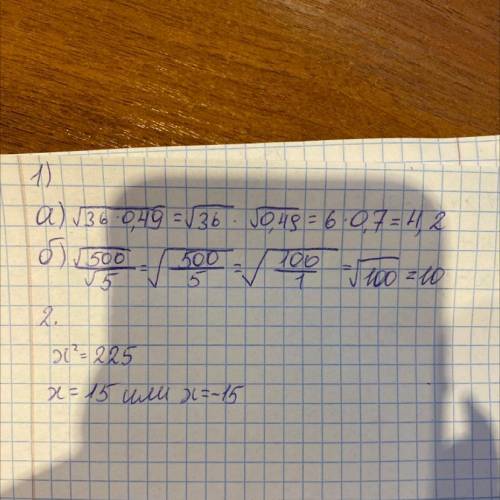 1)
а) √36·0,49 = √36 · √0,49 = 6·0,7 = 4,2
б) √500/√5 = √500/5 = √100/1 = √100 = 10
2.
x² = 225
x = 15 или x = -15